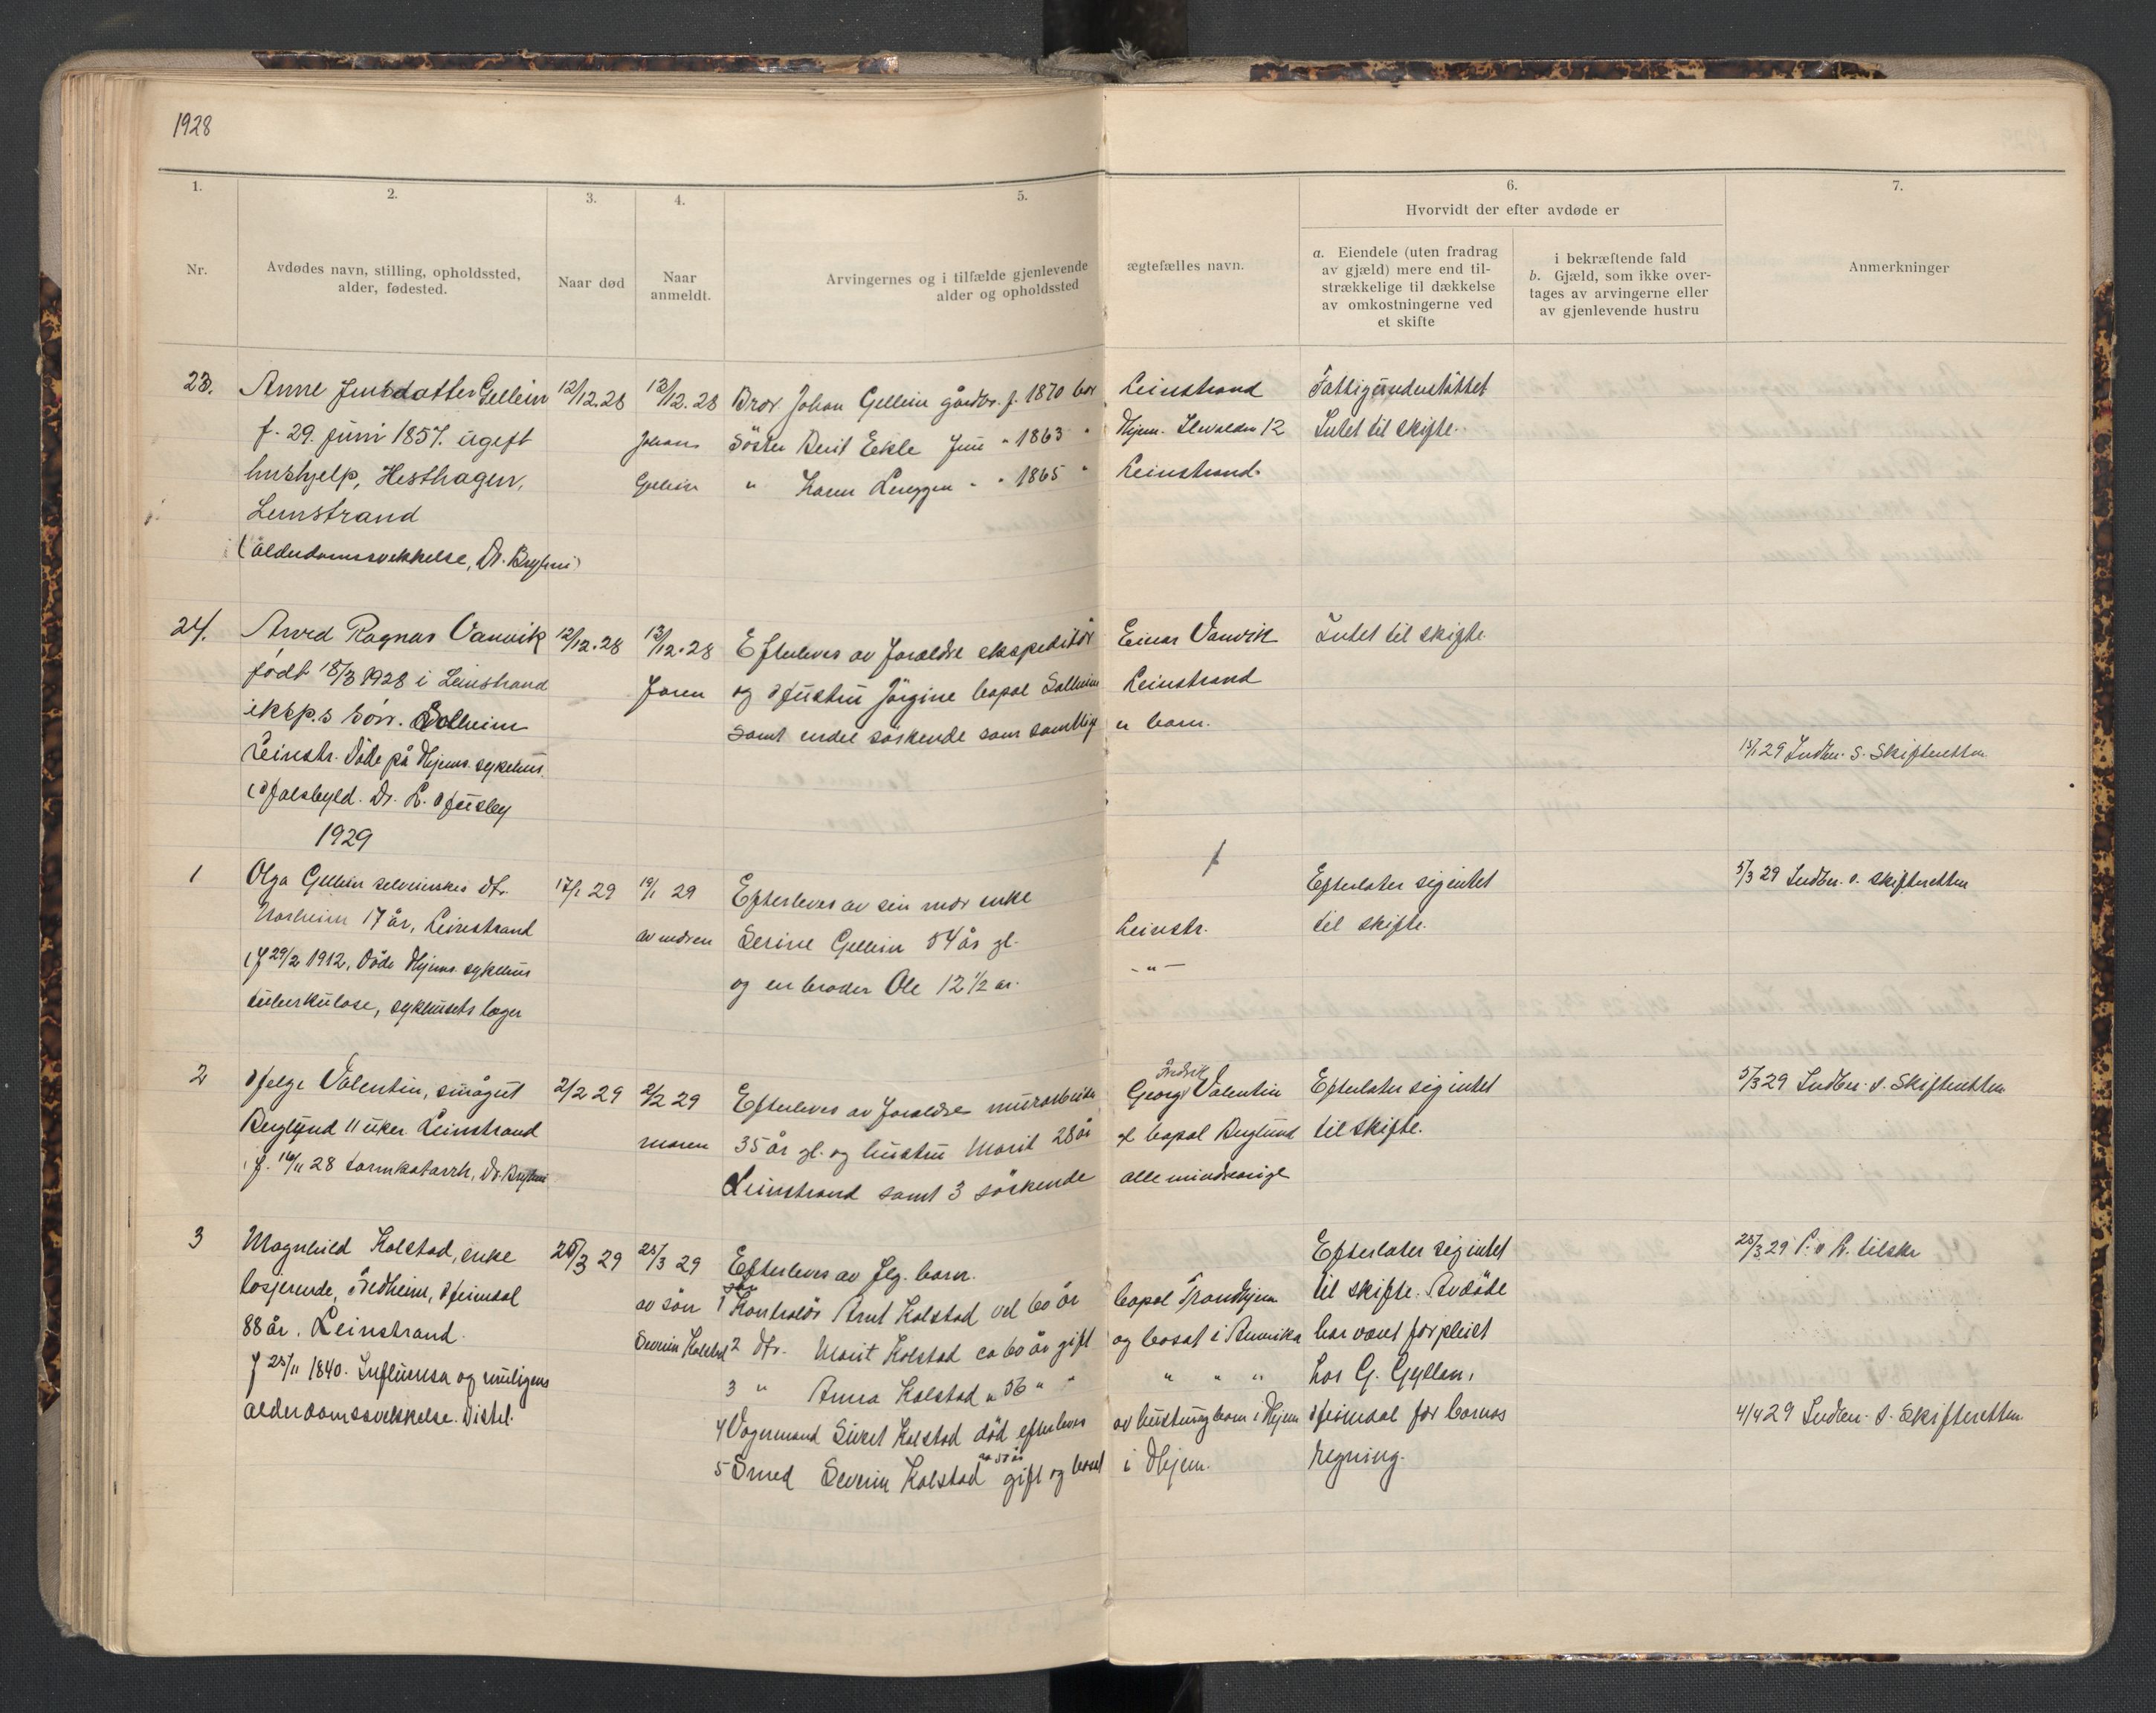 1928
1.
2.
3.
4.
5.
6.
7.
Nr.
Avdødes navn, stilling, opholdssted,
alder, fødested.
Naar død
Naar
anmeldt.
Arvingernes og i tilfælde gjenlevende
alder og opholdssted
ægtefælles navn.
Hvorvidt der efter avdøde er
a. Eiendele (uten fradrag
av gjæld) mere end til-
strækkelige til dækkelse
av omkostningerne ved
et skifte
i bekræftende fald
b. Gjæld, som ikke over-
tages av arvingerne eller
av gjenlevende hustru
Anmerkninger
23.
Anne Jensdatter Gellein
f. 29. juni 1857. ugift
hushjelp, Hesthagen,
Leinstrand
(alderdomssvekkelse, Dr.
12/12.28
13/12.28
Johans
Gellein
Bror Johan Gellein gårdbr. f. 1870 bor
Søster Berit Eekle " 1863 "
" Karen " " 1865 "
Leinstrand
Thjem. 12
Leinstrand.
Fattigunderstøttet
Intet til skifte.
24.
Arvid Ragnar Vanvik
født 18/3 1928 i Leinstrand
eksp.s sønn. Solheim
Leinstr. Døde på Thjems. sykehus.
(Halsbyld. Dr. L. Husby
12/12.28
13/12.28
Faren
Efterleves av foreldre ekspeditør
og Hustru Jørgine bopæl Solheim
samt endel søskende som samtlige
Einar Vanvik
Leinstrand
er barn.
Intet til skifte.
15/1 29 Indber. s. Skifteretten
1929
1
Olga Gellein selveierskes dtr.
Norheim 17 år, Leinstrand
(f 29/2 1912, Døde Thjems. sykehus
tuberkulose, sykehusets læger
17/1 29
19/1 29
av moren
Efterleves av sin mor enke
Serine Gellein 54 år gl.
og en broder Ole 12 1/2 år.
Leinstr.
- " -
Efterlater sig intet
til skifte.
5/3 29 Indber. s. skifteretten
2
Helge Valentin, smågut
Berglund 11 uker. Leinstrand
f. 16/11 28 tarmkatarrh, Dr.
2/2 29
2/2 29
moren
Efterleves av foreldre murarbeider
35 år gl. og hustru Marit 28 år
Leinstrand samt 3 søskende
Fredrik
Georg Valentin
gl bopæl Berglund
alle mindreårige
Efterlater sig intet
til skifte.
5/3 29 Indber. s. Skifteretten
3
Magnhild Kolstad, enke
losjerende, Fredheim, Heimdal
88 år. Leinstrand.
f 25/11 1840. Influensa og muligens
alderdomssvekkelse. Distrl.
25/3 29
25/3 29
av søn
Severin Kolstad
Efterleves av flg. barn.
1 Kontrolør Arnt Kolstad vel 60 år
2 dtr. Marit Kolstad ca 60 år gift
3 " Anna Kolstad " 56 " "
4 Vognmand Sivert Kolstad død efterleves
5 Smed Severin Kolstad ca 50 år gift og bosat
bopæl Trondhjem
og bosat i Amerika
" " "
av hustru og barn i Thjem
i Thjem.
Efterlater sig intet
til skifte. Avdøde
har været forpleiet
hos G. Gyllan,
Heimdal for barnas
regning.
25/3 29 P. v. K. tilskr
4/4 29 Indber. s. Skifteretten